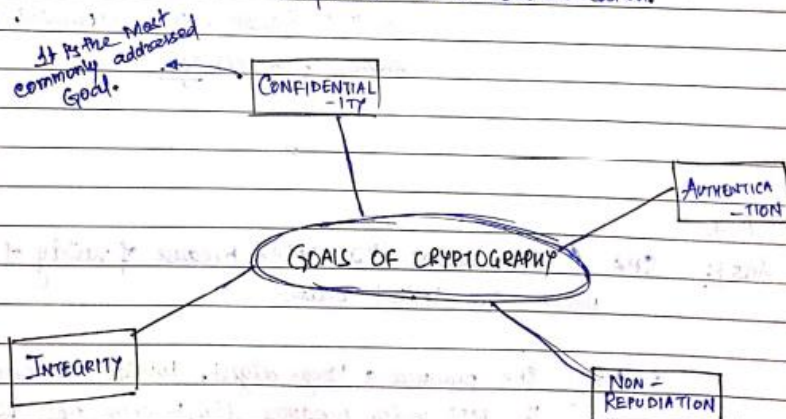 It is the Most
commonly addressed
Goal.
CONFIDENTIAL
-ITY
AUTHENTICA
-TION
GOALS OF CRYPTOGRAPHY
INTEGRITY
NON -
REPUDIATION